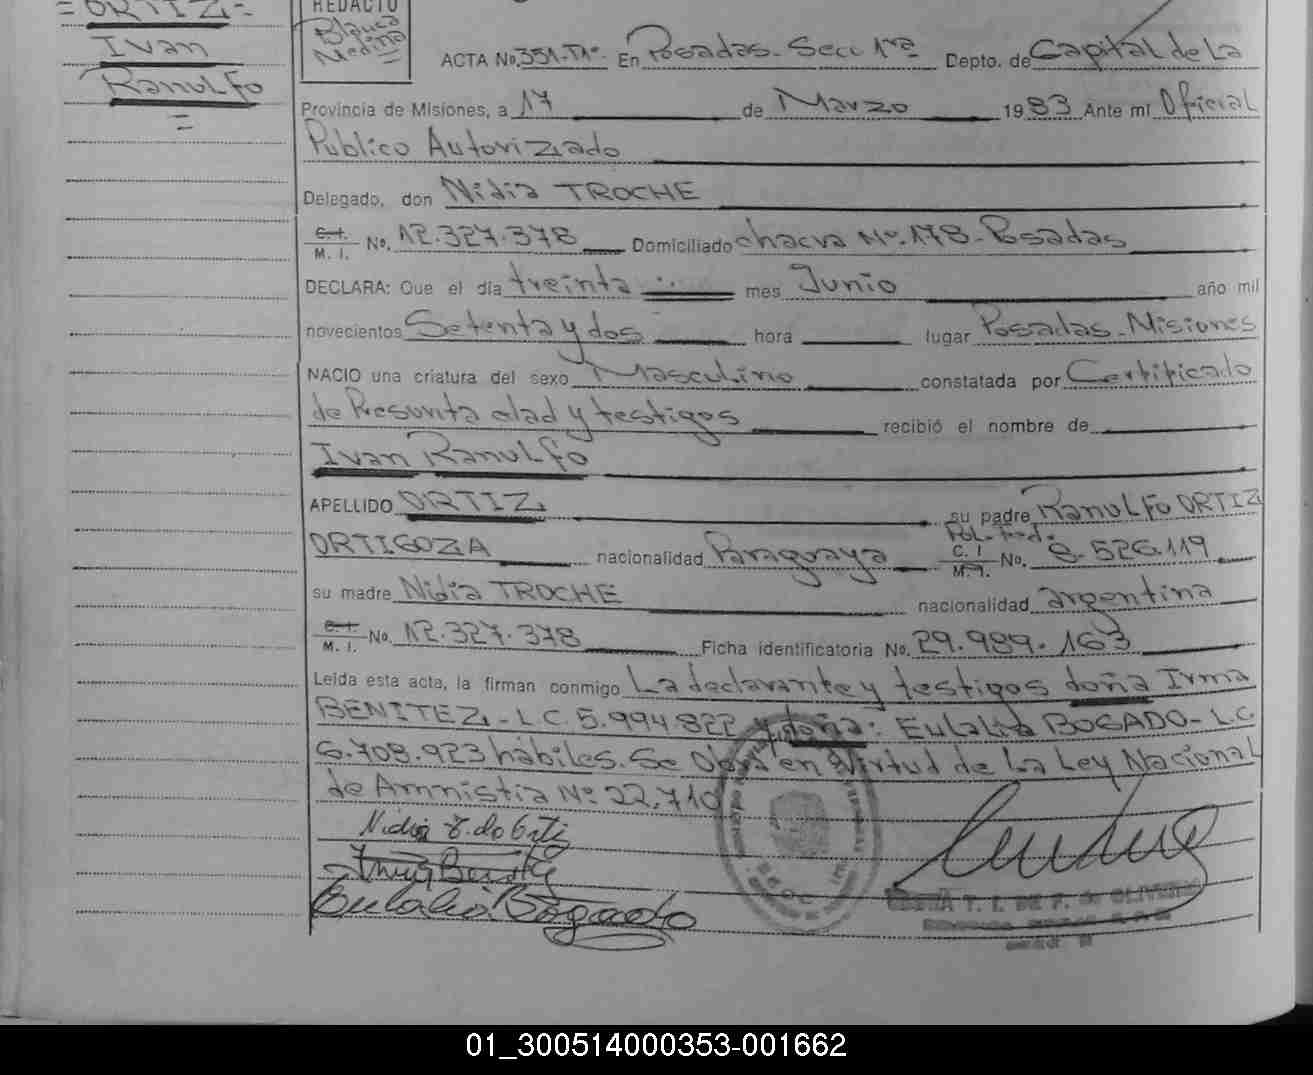 = ORTIZ =
Ivan
Ranulfo
=
REDACTO
Blanca
Medina
ACTA No. 351-Tº1º En Posadas - Secc 1ra Depto. de Capital de La
Provincia de Misiones, a 17 de Marzo 1983 Ante mi Oficial
Publico Autorizado
Delegado, don Nidia TROCHE
C. I. M. I. No. 12.327.378 Domiciliado chacra Nº. 178 - Posadas
DECLARA: Que el día treinta mes Junio año mil
novecientos Setenta y dos hora lugar Posadas - Misiones
NACIO una criatura del sexo Masculino constatada por Certificado
de Presunta edad y testigos recibió el nombre de
Ivan Ranulfo
APELLIDO ORTIZ su padre Ranulfo ORTIZ
ORTIGOZA nacionalidad Paraguaya Pol. C. I. M. I. No. 8.526.119
su madre Nidia TROCHE nacionalidad argentina
C. I. M. I. No. 12.327.378 Ficha identificatoria No. 29.989.163
Leída esta acta, la firman conmigo La declarante y testigos doña Irma
BENITEZ - L.C. 5.994.822 y doña: Eulalia BOGADO - L.C.
6.708.923 hábiles. Se Obra en Virtud de La Ley Nacional
de Amnistia Nº 22.710
Nidia T. de Ortiz
Irma Benitez
Eulalia Bogado
01_300514000353-001662